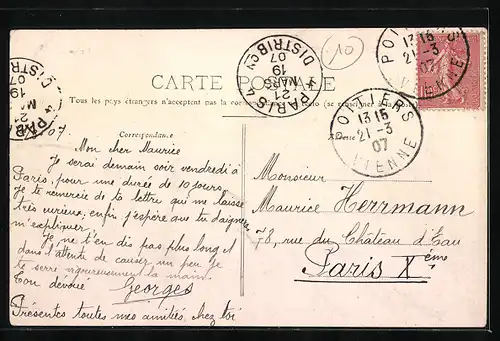 CARTE POSTALE
Tous les pays étrangers n'acceptent pas la
Correspondance
Mon cher Maurice
Je serai demain soir vendredi à
Paris, pour une durée de 10 jours,
je te remercie de ta lettre qui me laisse
très curieux, enfin j'espère que tu daigneras
m'expliquer.
Je ne t'en dis pas plus long et
dans l'attente de causer un peu je
te serre vigoureusement la main.
Ton dévoué
Georges
Présentes toutes mes amitiés, chez toi
10
PARIS 4
DISTRIBon
19
21
MARS
07
POITIERS
13 15
21-3
07
VIENNE
POITIERS
13 15
21-3
07
VIENNE
Monsieur
Maurice Herrmann
78, rue du Château d'Eau
Paris Xème